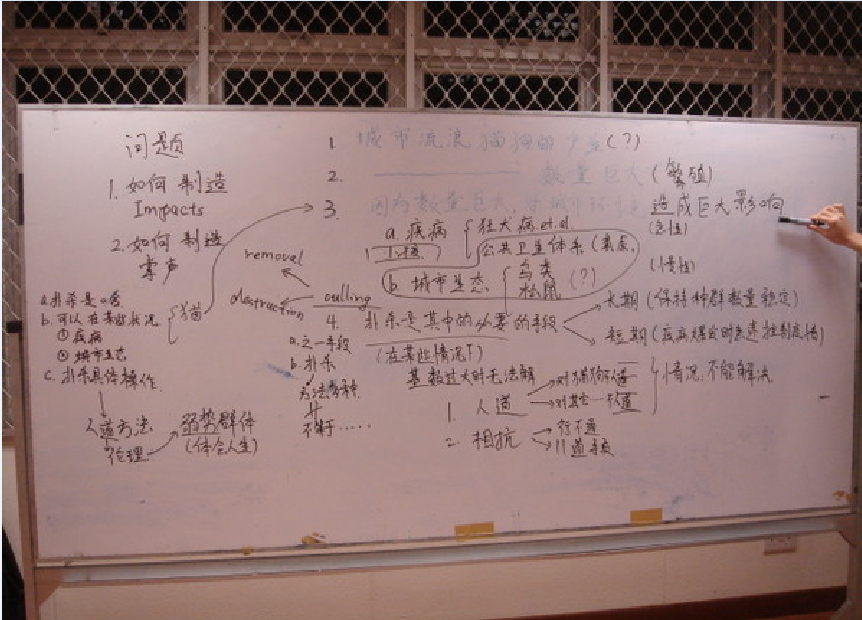 问题
1. 如何制造
Impacts
2. 如何制造
掌声
1. 城市流浪猫狗的产生(?)
2. 数量巨大(繁殖)
3. 因为数量巨大,造成巨大影响
(急性)
(慢性)
a. 疾病
狂犬病.et.al
公共卫生体系
b. 城市生态
鸟类
松鼠
(?)
removal
destruction
culling
4. 扑杀是其中的必要的手段
(在某些情况下)
长期(保持种群数量稳定)
短期
a. 之一手段
b. 扑杀
不等于……
基数过大时无法解
1. 人道
对猫狗不人道
对其它一不人道
情况,不能解决
2. 相抗
行不通
猫
b. 可以在某些状况
① 疾病
② 城市生态
c. 扑杀具体操作.
人道方法
伦理
弱势群体
(体会人生)